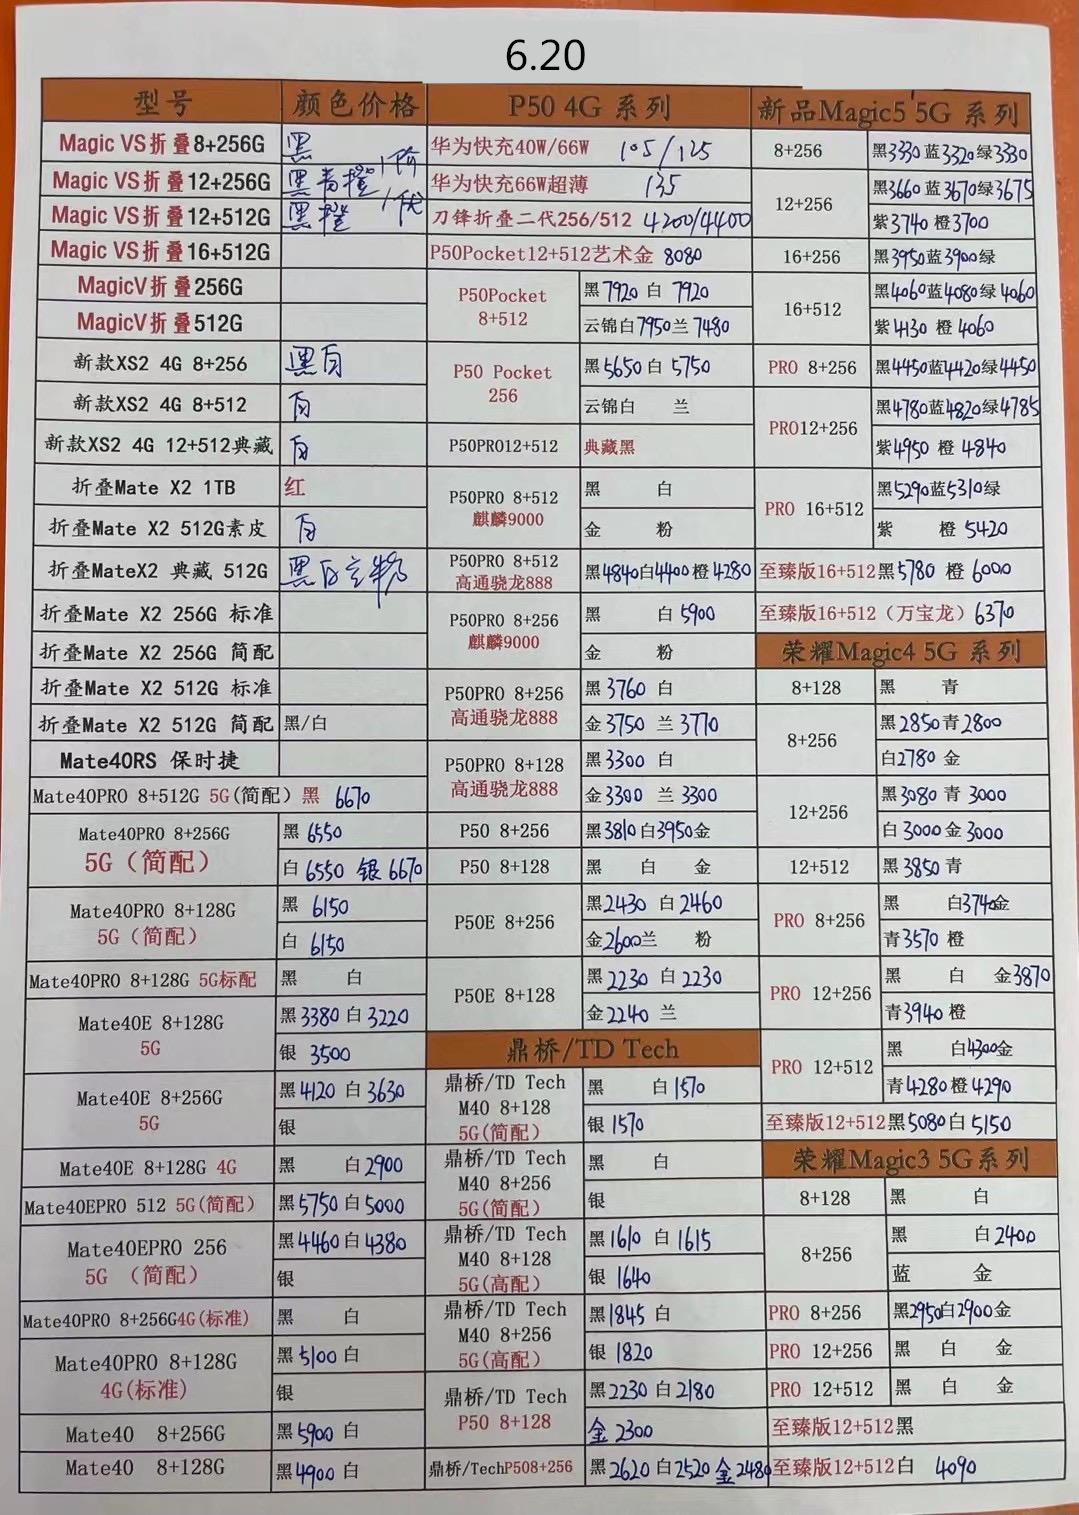 6.20
型号 颜色价格
Magic VS折叠8+256G 黑
Magic VS折叠12+256G 黑青橙
Magic VS折叠12+512G 黑橙
Magic VS折叠16+512G
MagicV折叠256G
MagicV折叠512G
新款XS2 4G 8+256 黑白
新款XS2 4G 8+512 白
新款XS2 4G 12+512典藏 白
折叠Mate X2 1TB 红
折叠Mate X2 512G素皮 白
折叠MateX2 典藏 512G 黑白
折叠Mate X2 256G 标准
折叠Mate X2 256G 简配
折叠Mate X2 512G 标准
折叠Mate X2 512G 简配 黑/白
Mate40RS 保时捷
Mate40PRO 8+512G 5G(简配) 黑 6670
Mate40PRO 8+256G
5G（简配）
黑 6550
白 6550 银 6670
Mate40PRO 8+128G
5G（简配）
黑 6150
白 6150
Mate40PRO 8+128G 5G标配 黑 白
Mate40E 8+128G
5G
黑3380 白3220
银 3500
Mate40E 8+256G
5G
黑4120 白3630
银
Mate40E 8+128G 4G 黑 白2900
Mate40EPRO 512 5G(简配) 黑5750白5000
Mate40EPRO 256
5G （简配）
黑4460白4380
银
Mate40PRO 8+256G4G(标准) 黑 白
Mate40PRO 8+128G
4G(标准)
黑5100白
银
Mate40 8+256G 黑5900白
Mate40 8+128G 黑4900白
P50 4G 系列
华为快充40W/66W 105/125
华为快充66W超薄 135
刀锋折叠二代256/512 4200/4400
P50Pocket12+512艺术金 8080
P50Pocket
8+512
黑7920 白 7920
云锦白7950兰 7480
P50 Pocket
256
黑5650白 5750
云锦白 兰
P50PRO12+512 典藏黑
P50PRO 8+512
麒麟9000
黑 白
金 粉
P50PRO 8+512
高通骁龙888
黑4840白4400橙4280
P50PRO 8+256
麒麟9000
黑 白5900
金 粉
P50PRO 8+256
高通骁龙888
黑3760 白
金3750 兰 3770
P50PRO 8+128
高通骁龙888
黑3300 白
金3300 兰 3300
P50 8+256 黑3810白3950金
P50 8+128 黑 白 金
P50E 8+256
黑2430 白2460
金2600兰 粉
P50E 8+128
黑2230 白2230
金2240 兰
鼎桥/TD Tech
鼎桥/TD Tech
M40 8+128
5G(简配)
黑 白1570
银 1570
鼎桥/TD Tech
M40 8+256
5G(简配)
黑 白
银
鼎桥/TD Tech
M40 8+128
5G(高配)
黑1610 白1615
银 1640
鼎桥/TD Tech
M40 8+256
5G(高配)
黑1845 白
银 1820
鼎桥/TD Tech
P50 8+128
黑2230白2180
金 2300
鼎桥/TechP508+256 黑2620白2520金2480
新品Magic5 5G 系列
8+256 黑3330蓝3320绿3330
12+256
黑3660蓝3670绿3675
紫3740 橙3700
16+256 黑3950蓝3900绿
16+512
黑4060蓝4080绿4060
紫4130 橙 4060
PRO 8+256 黑4450蓝4420绿4450
PRO12+256
黑4780蓝4820绿4785
紫4950 橙 4840
PRO 16+512
黑5290蓝5310绿
紫 橙 5420
至臻版16+512黑5780 橙 6000
至臻版16+512（万宝龙）6370
荣耀Magic4 5G 系列
8+128 黑 青
8+256
黑2850青2800
白2780 金
12+256
黑3080青 3000
白3000金3000
12+512 黑3850青
PRO 8+256
黑 白3740金
青3570 橙
PRO 12+256
黑 白 金3870
青3940橙
PRO 12+512
黑 白4300金
青4280橙4290
至臻版12+512黑5080白5150
荣耀Magic3 5G系列
8+128 黑 白
8+256
黑 白2400
蓝 金
PRO 8+256 黑2950白2900金
PRO 12+256 黑 白 金
PRO 12+512 黑 白 金
至臻版12+512黑
至臻版12+512白 4090